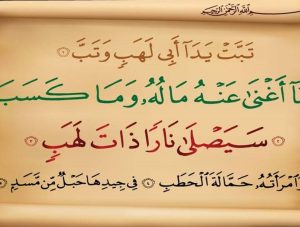 بِسْمِ اللَّهِ الرَّحْمَٰنِ الرَّحِيمِ
تَبَّتْ يَدَآ أَبِي لَهَبٍ وَتَبَّ ١
آ أَغْنَىٰ عَنْهُ مَالُهُۥ وَمَا كَسَبَ
٢ سَيَصْلَىٰ نَارًا ذَاتَ لَهَبٍ ٣
وَٱمْرَأَتُهُۥ حَمَّالَةَ ٱلْحَطَبِ ٤ فِي جِيدِهَا حَبْلٌ مِّن مَّسَدٍ ٥